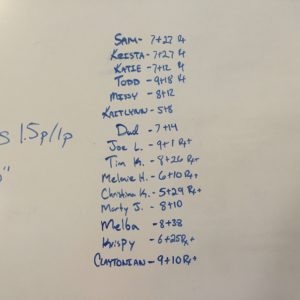 SAM - 7+27
KRISTA - 7+27
KATIE - 7+12
TODD - 9+18
MISSY - 8+12
KAITLYNN - 5+8
Dad - 7+14
s 1.5p/1p
Joe L. - 9+1 Rx+
Tim K. - 8+26 Rx+
Melanie H. - 6+10 Rx+
Christina K. - 5+29 Rx+
Marty J. - 8+10
Melba - 8+38
Krispy - 6+25 Rx+
CLAYTONIAN - 9+10 Rx+